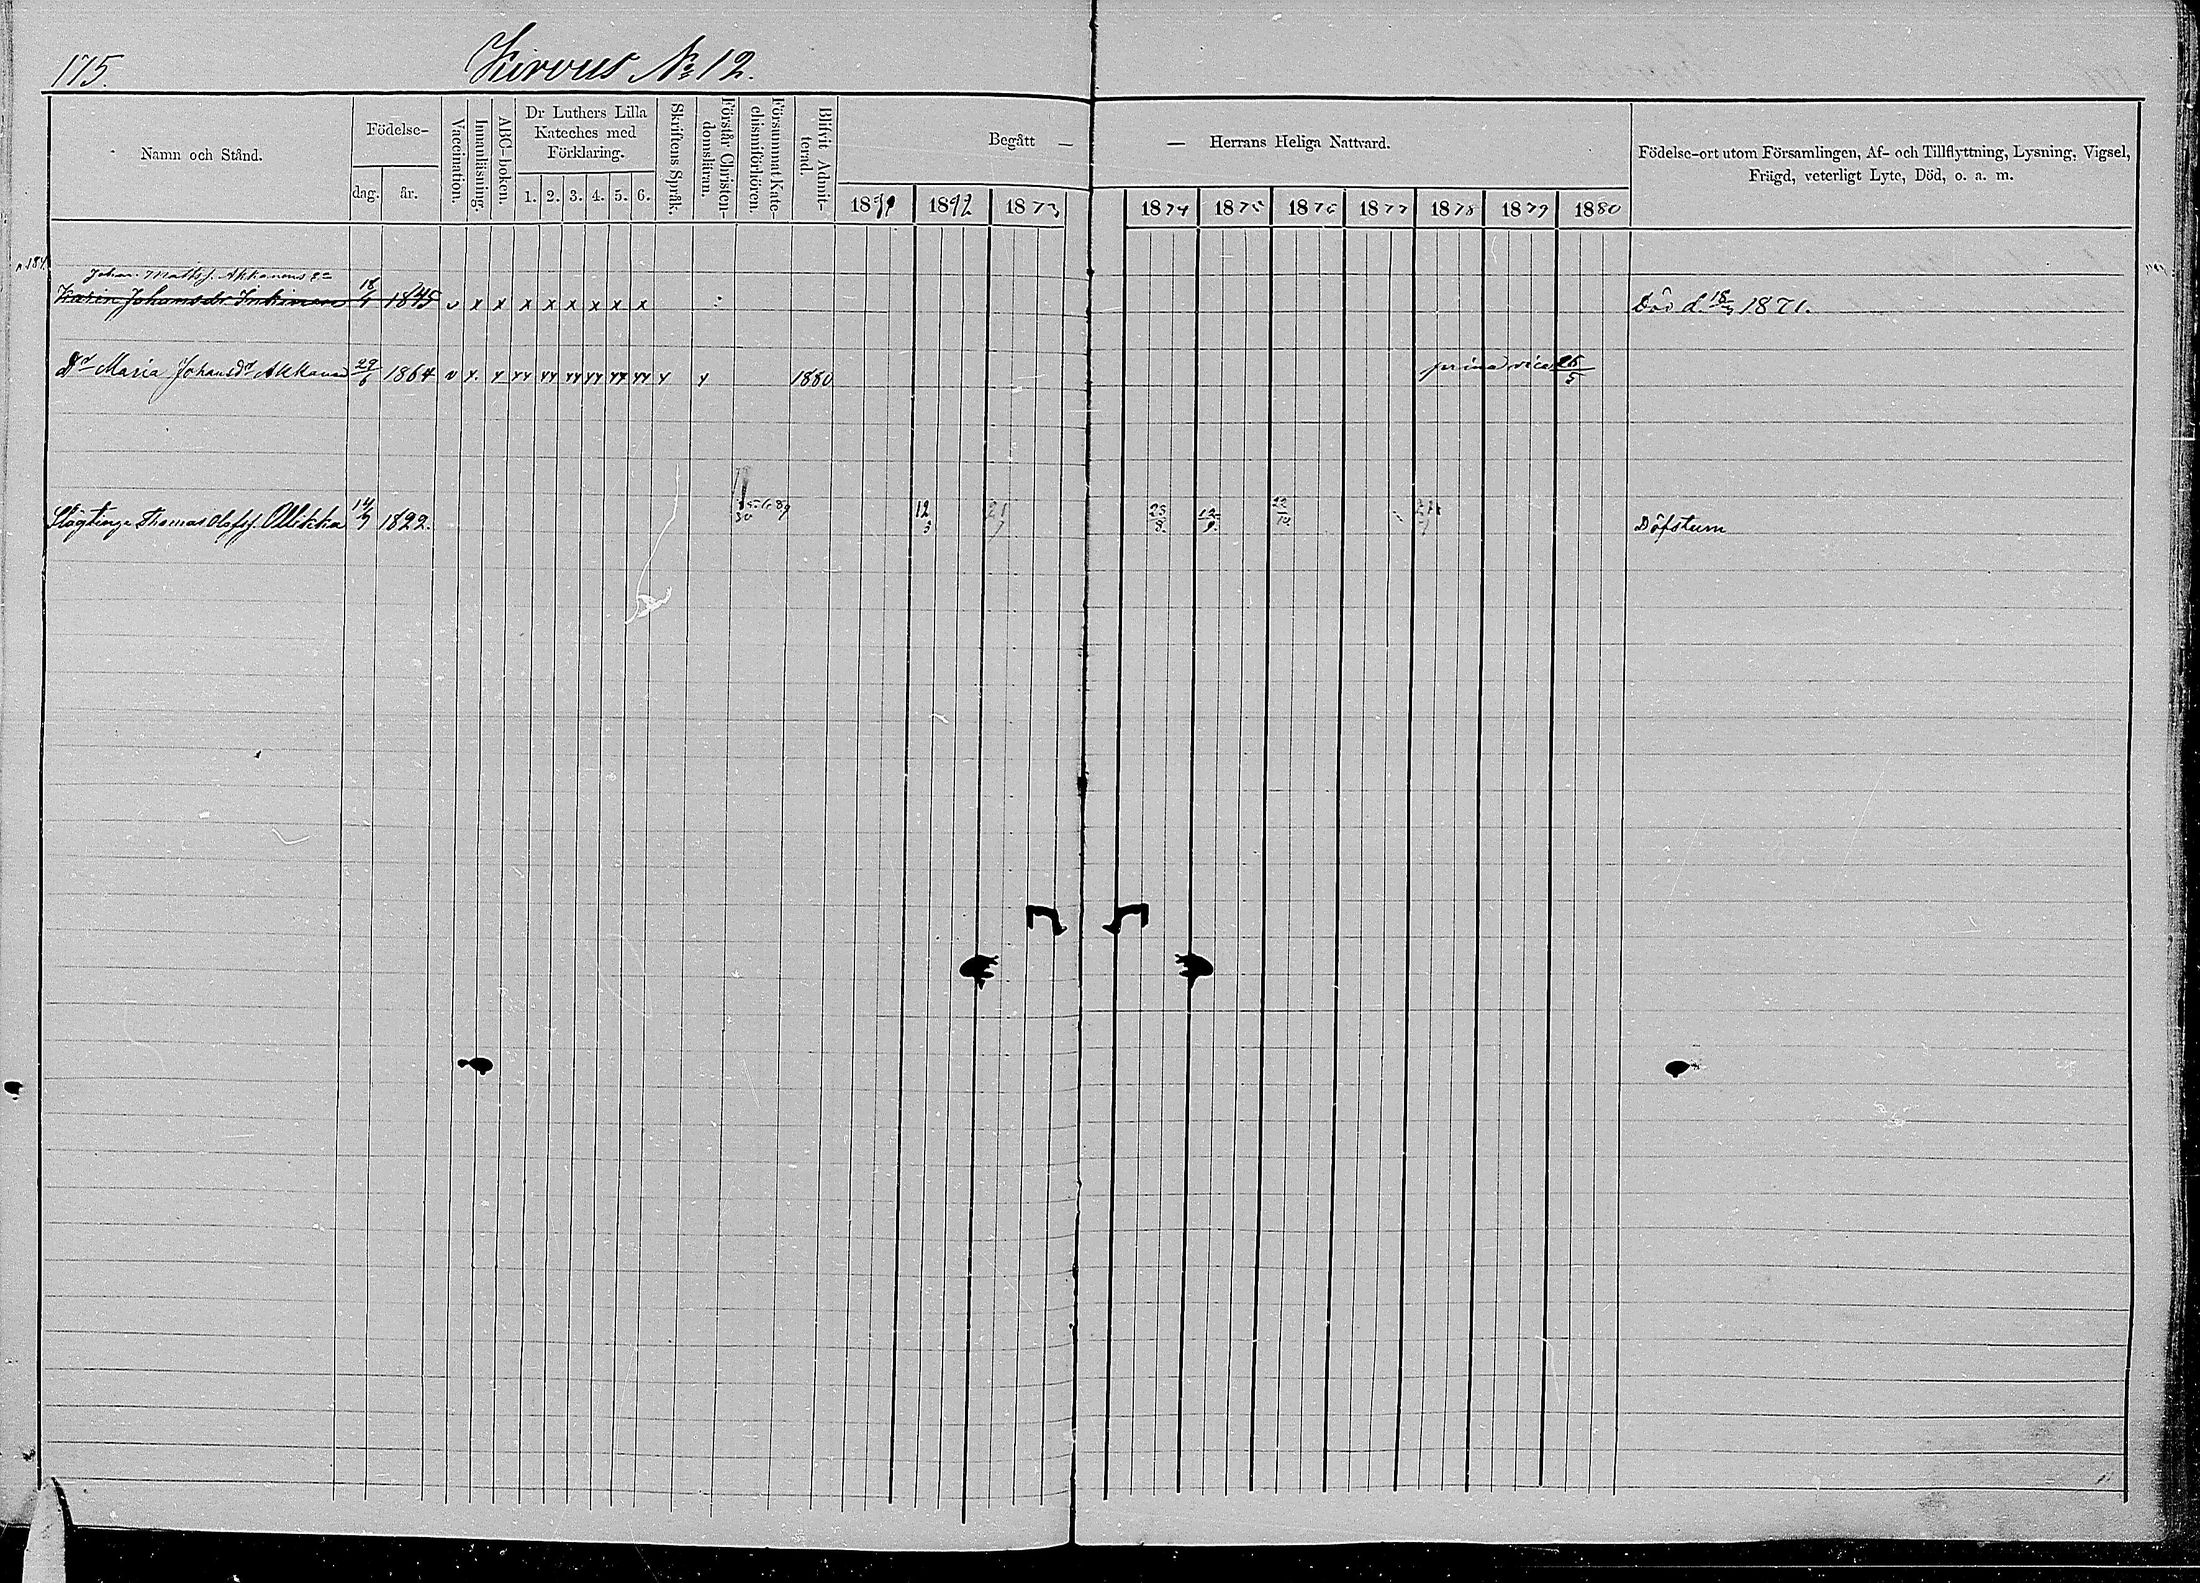 175.
Kirvus № 12.
Namn och Stånd.
Födelse-
dag.
år.
Vaccination.
Innanläsning.
ABC-boken.
Dr Luthers Lilla
Kateches med
Förklaring.
1. 2. 3. 4. 5. 6.
Skriftens Språk.
Förstår Christen-
domsläran.
Försummat Kate-
chismiförhören.
Blifvit Admit-
terad.
Begått —
— Herrans Heliga Nattvard.
1892 1873
1874 1875 1876 1877 1878 1879 1880
Födelse-ort utom Församlingen, Af- och Tillflyttning, Lysning, Vigsel,
Frägd, veterligt Lyte, Död, o. a. m.
Johan Mattsf. Akkanens
Karin Johansdr Inkinen 18/4 1845 v x x x x x x x x Död d. 18/3 1871.
Dr Maria Johansdr Akkanen 29/6 1864 v x x xx xx xx xx xx xx x x 1880 prima vice 26/5
Thomas Olofsf. Ollikka 14/9 1822. 12/3 21/7 23/8. 12/9. 22/10 Döfstum